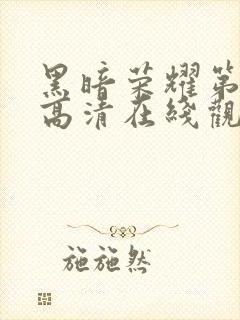 黑暗荣耀第
高清在线觀
施施然